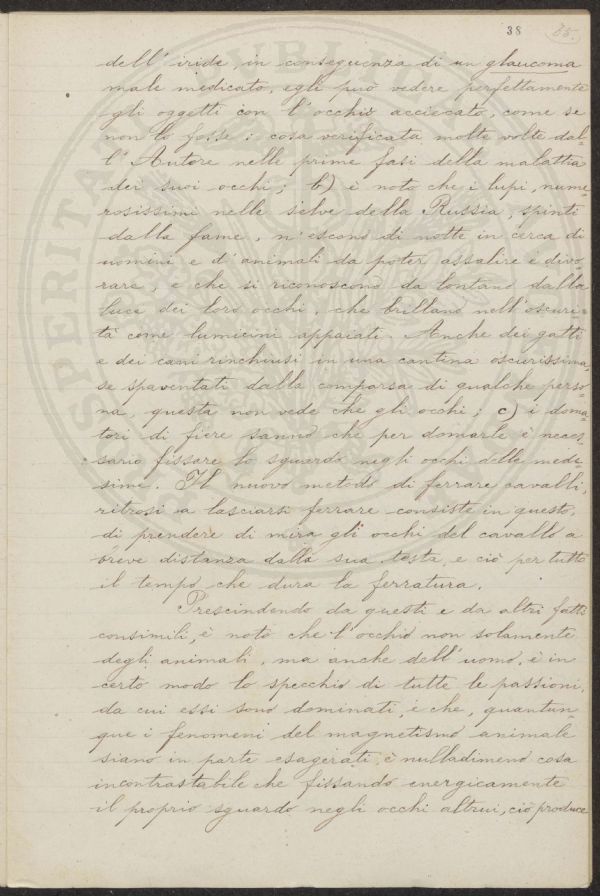 38 75.
dell'iride, in conseguenza di un glaucoma
male medicato, egli può vedere perfettamente
gli oggetti con l'occhio acciecato, come se
non lo fosse: cosa verificata molte volte dal-
l'Autore nelle prime fasi della malattia
dei suoi occhi; b) è noto che i lupi, nume-
rosissimi nelle selve della Russia, spinti
dalla fame, n'escono di notte in cerca di
uomini e d'animali da poter assalire e divo-
rare, e che si riconoscono da lontano dalla
luce dei loro occhi, che brillano nell'oscuri-
tà come lumicini appaiati. Anche dei gatti
e dei cani rinchiusi in una cantina oscurissima,
se spaventati dalla comparsa di qualche perso-
na, questa non vede che gli occhi; c) i doma-
tori di fiere sanno che per domarle è neces-
sario fissare lo sguardo negli occhi delle mede-
sime. Il nuovo metodo di ferrare cavalli,
ritrosi a lasciarsi ferrare consiste in questo,
di prendere di mira gli occhi del cavallo a
breve distanza dalla sua testa, e ciò per tutto
il tempo che dura la ferratura.
Prescindendo da questi e da altri fatti
consimili, è noto che l'occhio non solamente
degli animali, ma anche dell'uomo, è in
certo modo lo specchio di tutte le passioni,
da cui essi sono dominati, e che, quantun-
que i fenomeni del magnetismo animale
siano in parte esagerati, è nulladimeno cosa
incontrastabile che fissando energicamente
il proprio sguardo negli occhi altrui, ciò produce